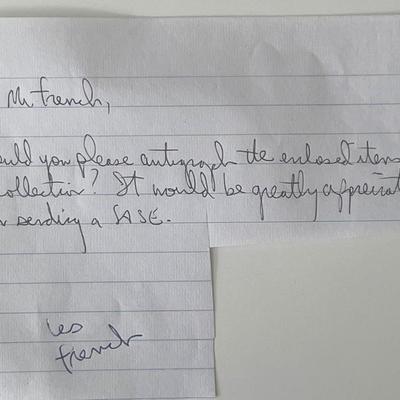 Mr French,
ould you please autograph the enclosed items
collection? It would be greatly appreciat
sending a SASE.
Les
French